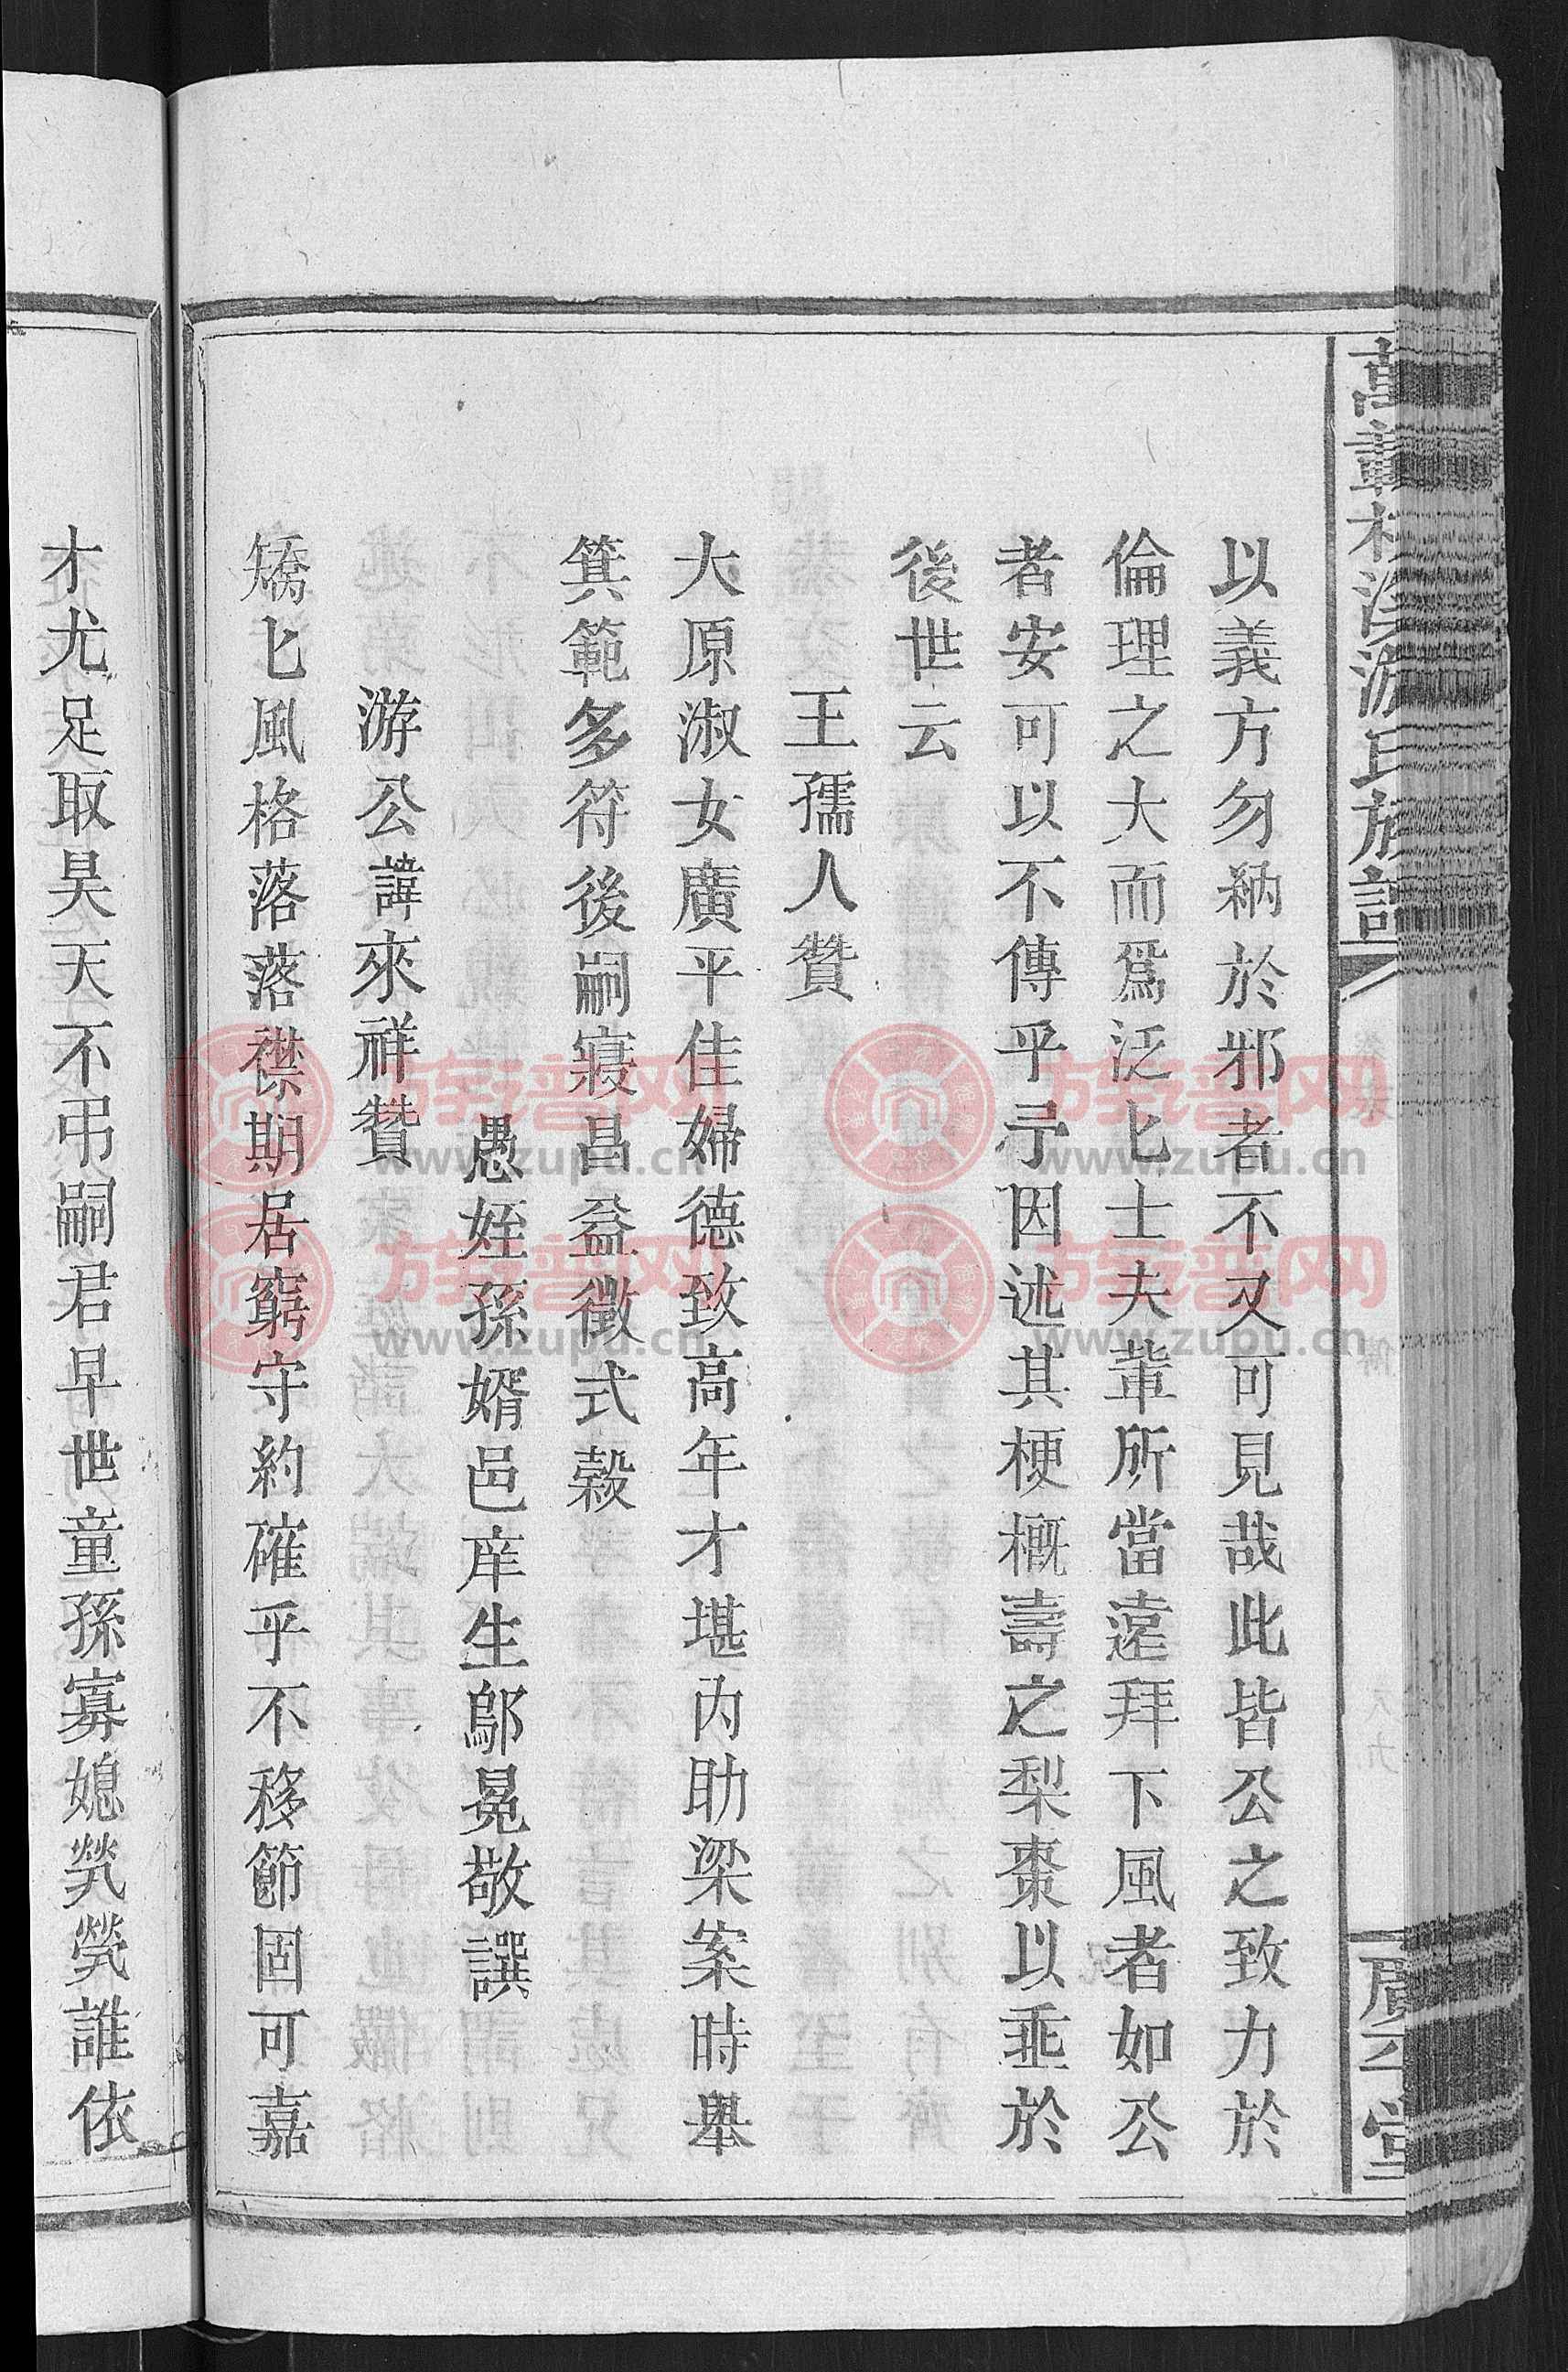 以義方勿納於邪者不又可見哉此皆公之致力於
倫理之大而爲泛匕士夫輩所當遠拜下風者如公
者安可以不傳乎予因述其梗概壽之梨棗以垂於
後世云
王孺人贊
大原淑女廣平佳婦德致高年才堪內助梁案時舉
箕範多符後嗣寢昌益徵式穀
愚姪孫婿邑庠生鄔冕敬譔
游公諱來祥贊
矯匕風格落落襟期居窮守約確乎不移節固可嘉
才尤足取昊天不弔嗣君早世童孫寡媳煢煢誰依
族譜网
www.zupu.cn
族譜网
www.zupu.cn
族譜网
www.zupu.cn
族譜网
www.zupu.cn